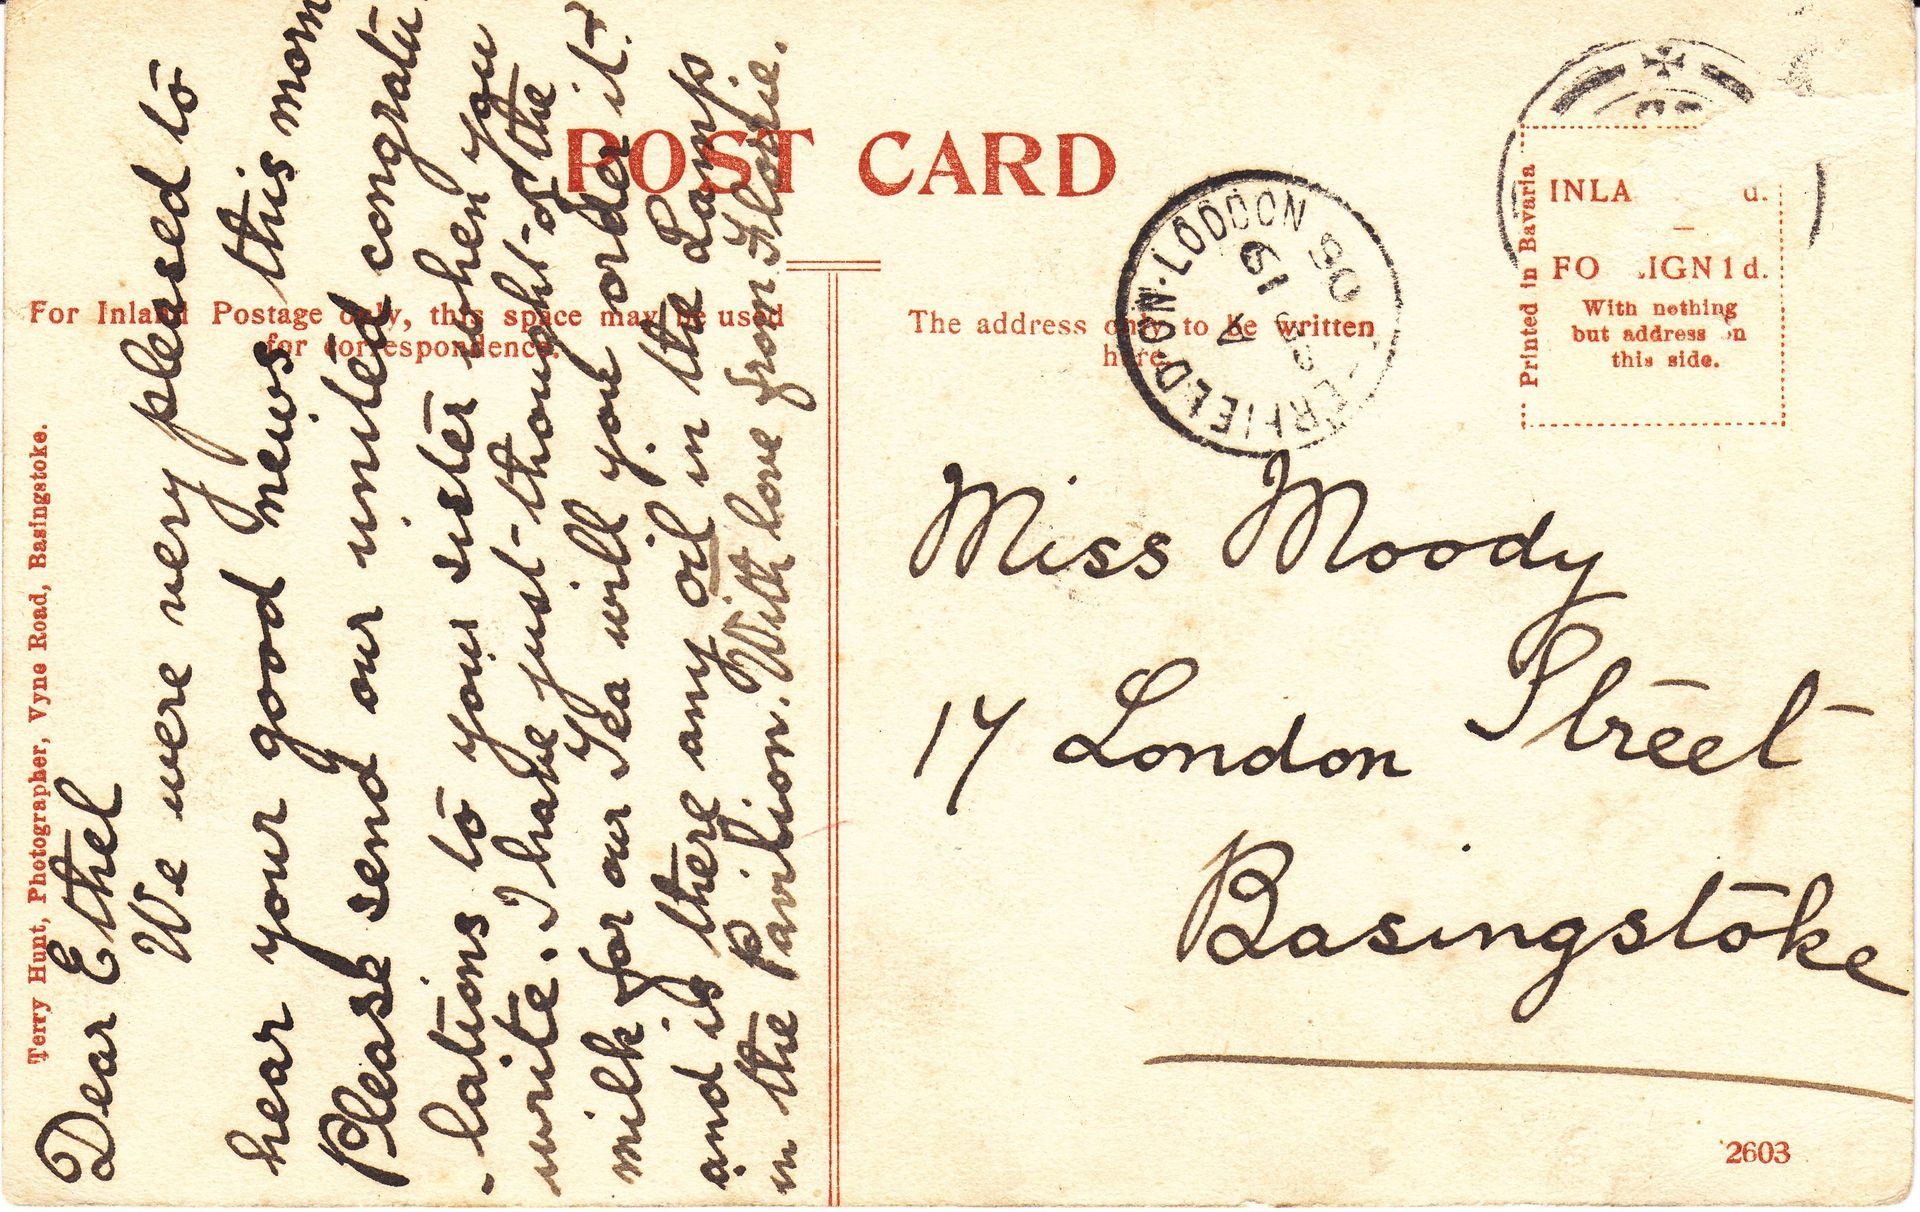 POST CARD
For Inland Postage only, this space may be used
for correspondence.
The address only to be written
here.
Terry Hunt, Photographer, Vyne Road, Basingstoke.
Printed in Bavaria
INLA d.
FO IGN 1d.
With nothing
but address on
this side.
ERFIELD·ON·LODDON
A
19
08
Dear Ethel
We were very pleased to
hear your good news this morn
Please send our united congratu
-lations to your sister when you
write. I have just thought of the
milk for our Tea will you order it &
and is there any oil in the Lamp
in the Pavilion. With love from Florrie.
Miss Moody
17 London Street
Basingstoke
2603